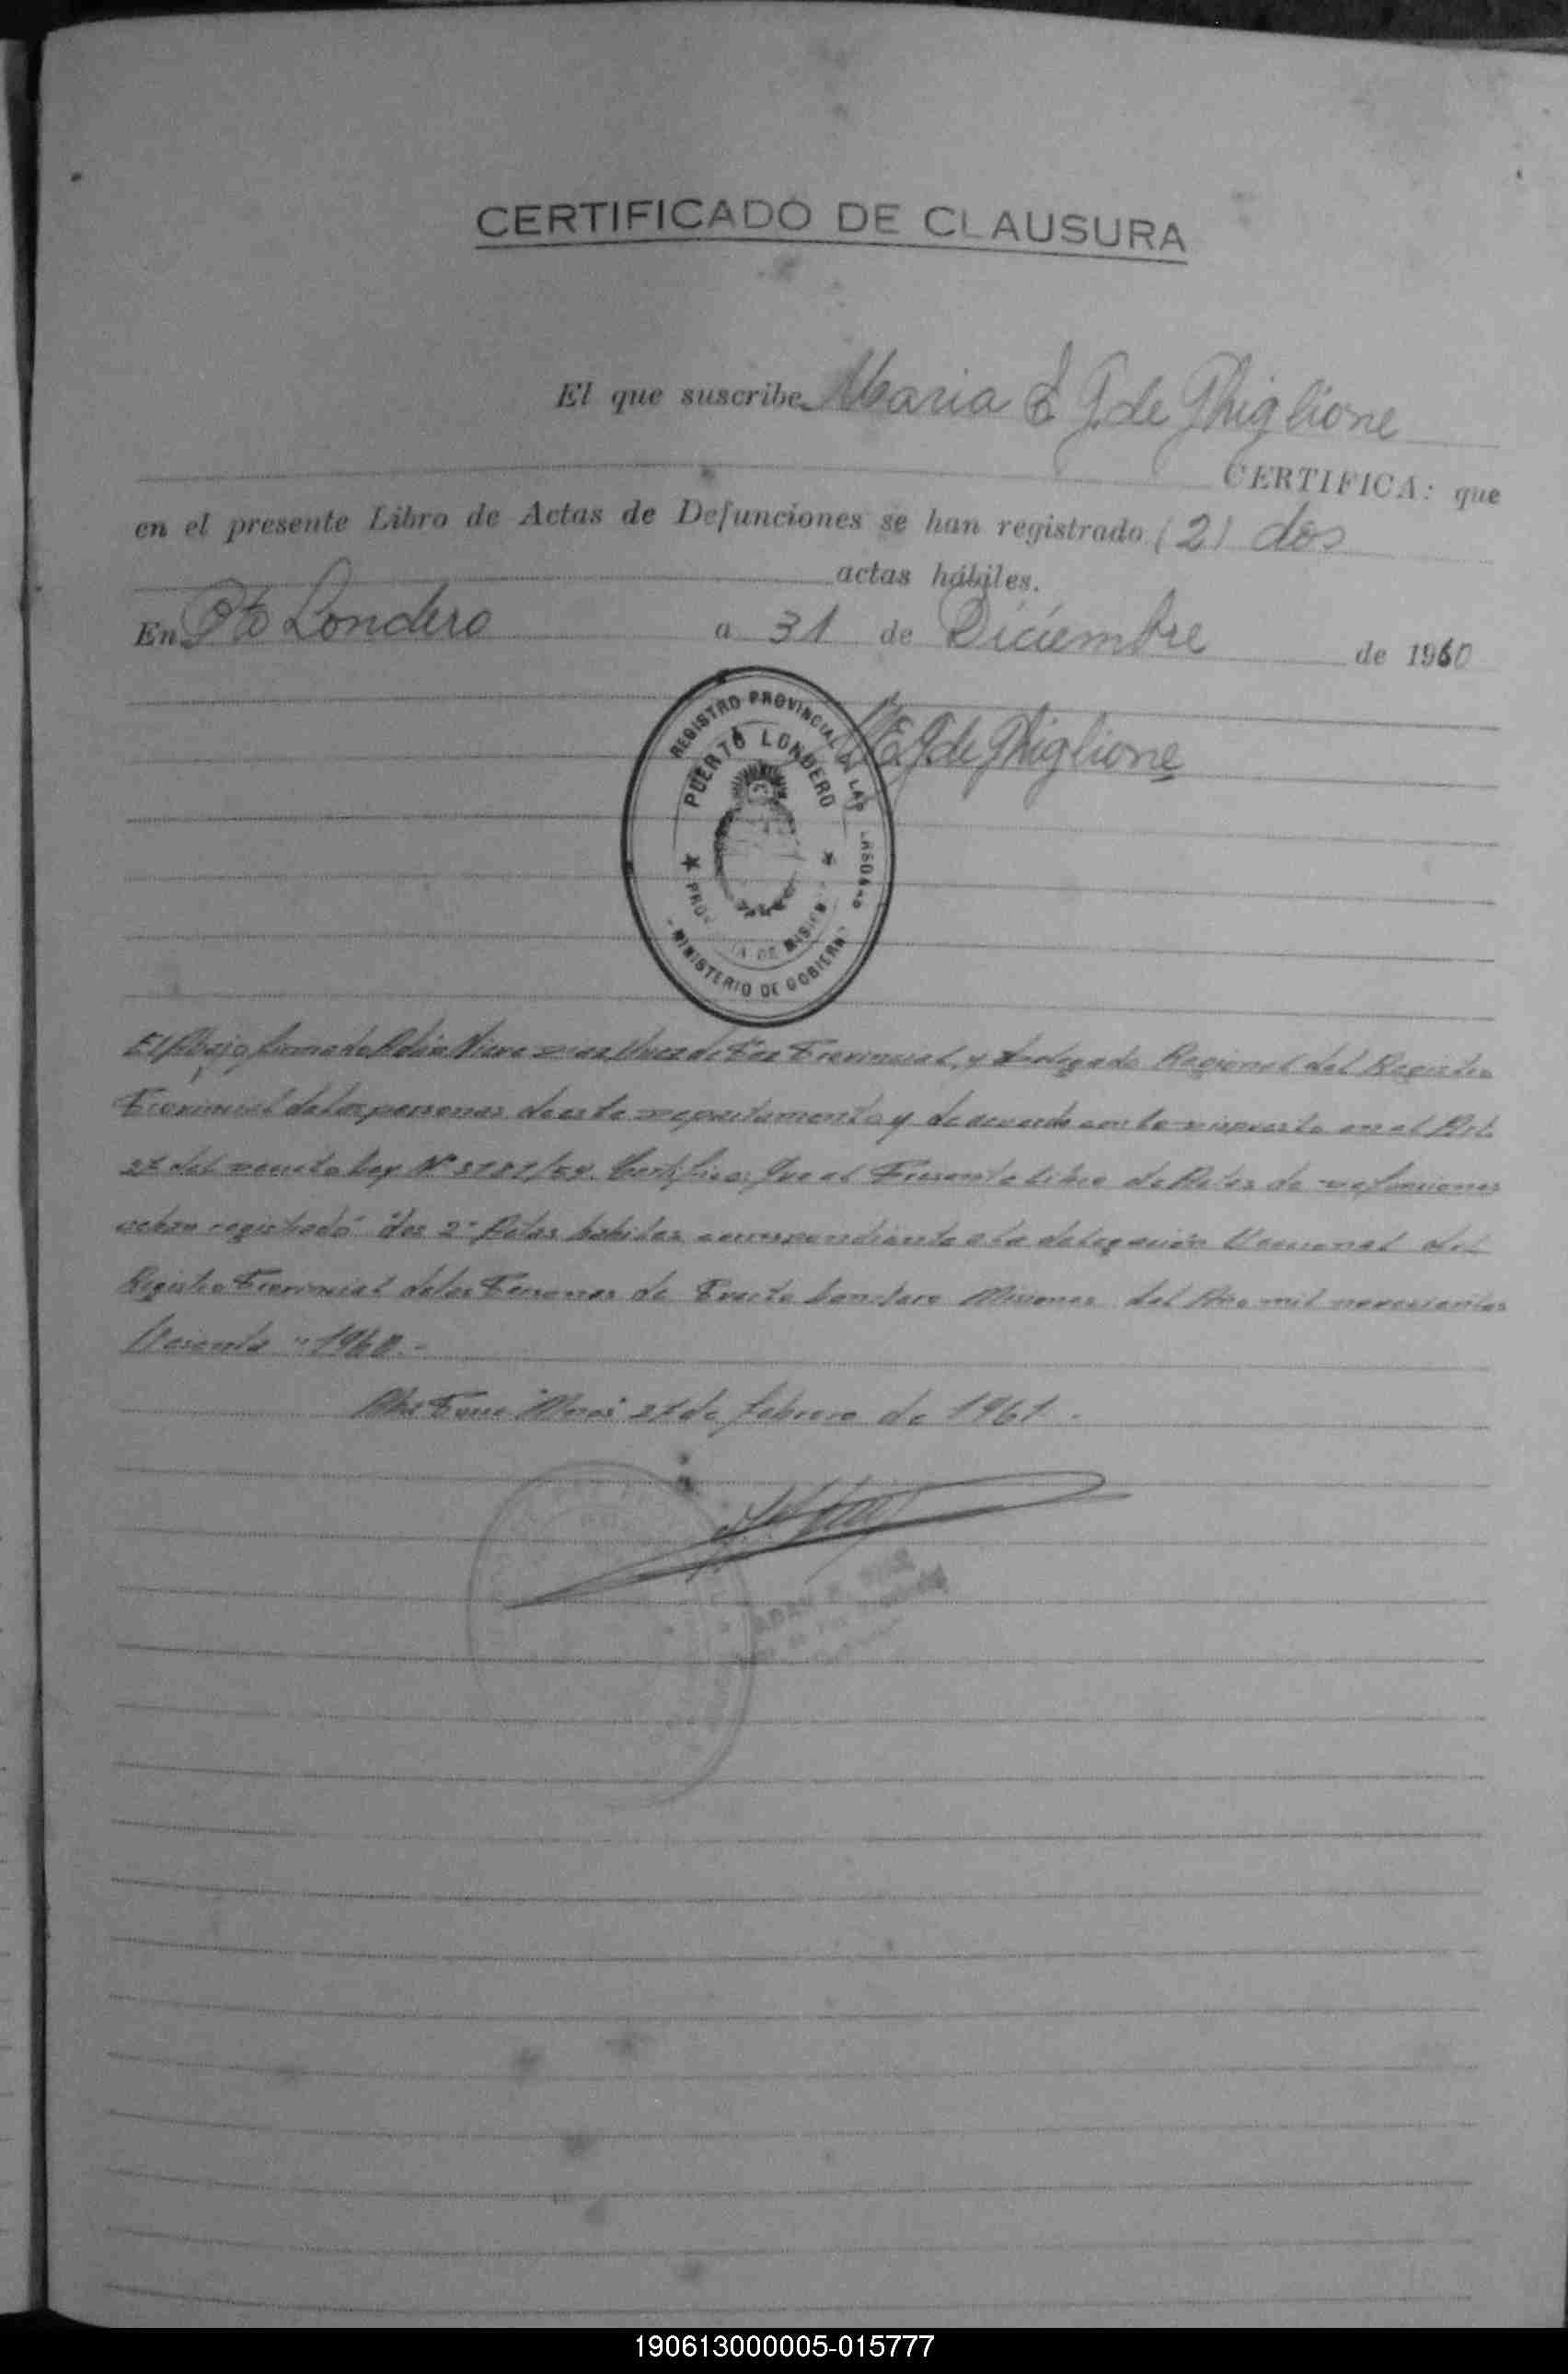 CERTIFICADO DE CLAUSURA
El que suscribe Maria E G. de Ghiglione
CERTIFICA: que
en el presente Libro de Actas de Defunciones se han registrado (2) dos
actas hábiles.
En Pto Londero a 31 de Diciembre de 1960
REGISTRO PROVINCIAL DE LAS PERSONAS
PUERTO LONDERO
PROVINCIA DE MISIONES
MINISTERIO DE GOBIERNO
M E G. de Ghiglione
El Abajo firmado Adán Viera Diaz Juez de Paz Provincial, y Delegado Regional del Registro
Provincial de las personas de este Departamento y de acuerdo con lo dispuesto en el Art.
del Decreto Ley Nº Certifico: Que el Presente Libro de Actas de Defunciones
se han registrado "dos 2" Actas habiles correspondiente a la delegación Seccional del
Registro Provincial de las Personas de Puerto Londero Misiones del Año mil novecientos
Sesenta "1960.-
de febrero de 1961.-